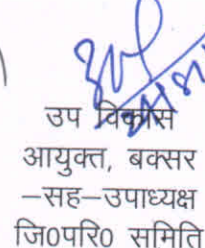 उप विकास
आयुक्त, बक्सर
–सह–उपाध्यक्ष
जि0परि0 समिति